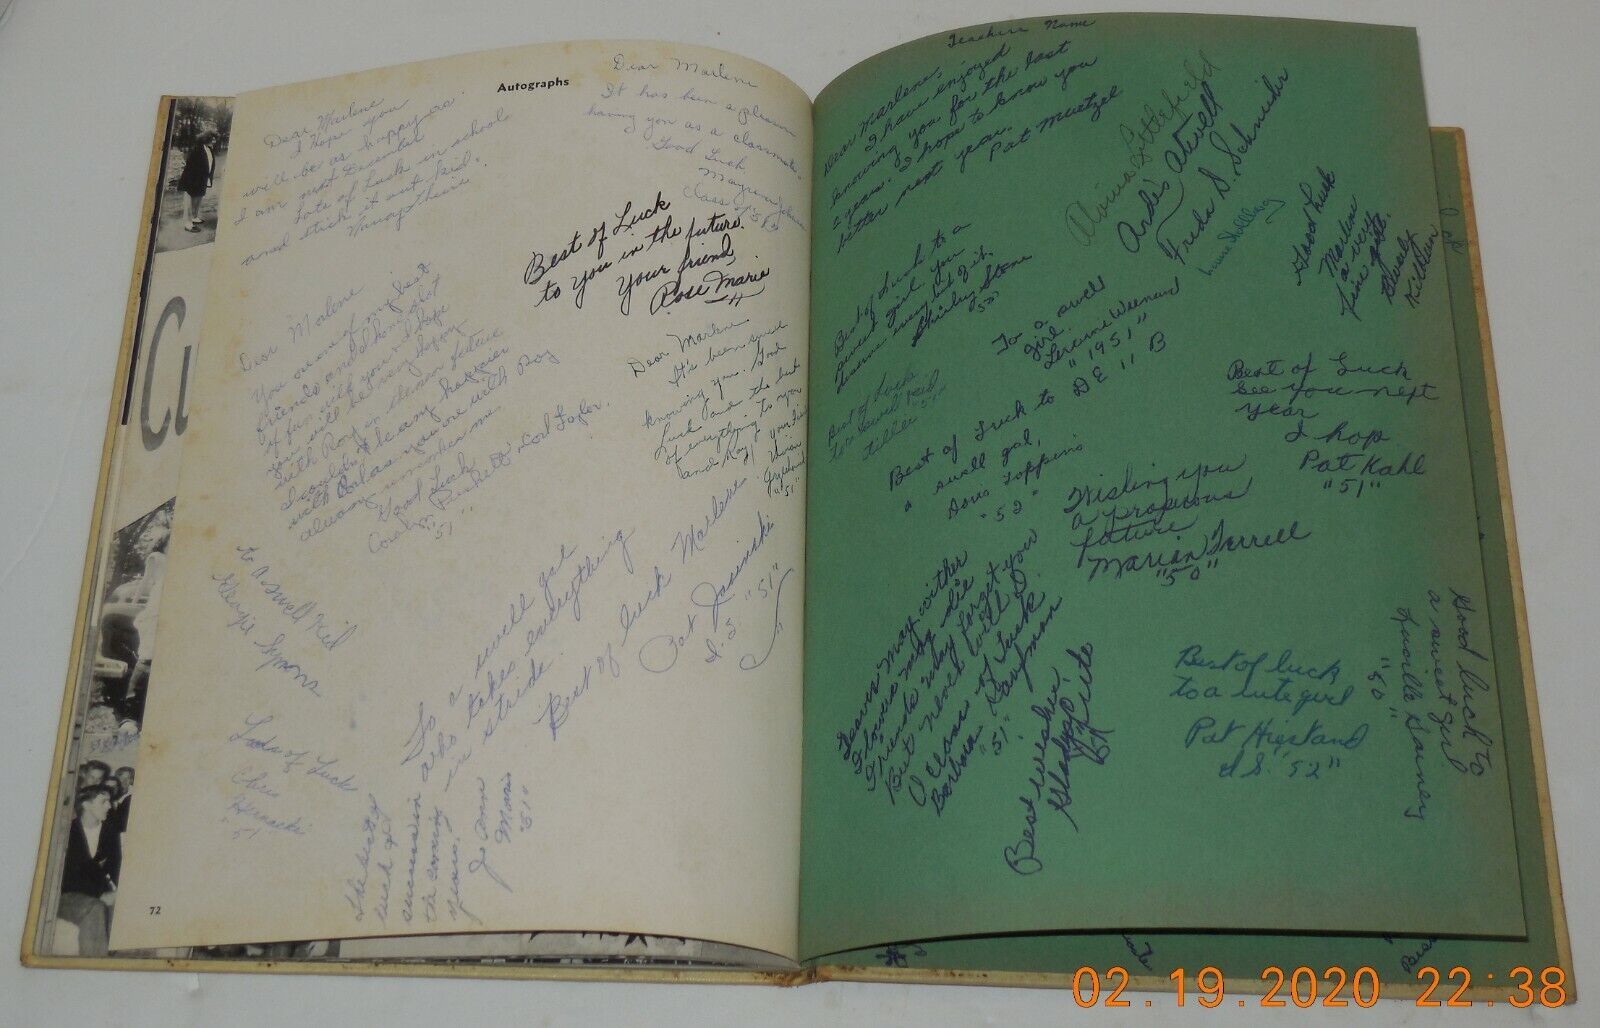 Autographs
Dear Marlene
I hope you
will be as happy as
I am next December
Lots of Luck in school
and stick it out kid.
Dear Marlene
It has been a pleasure
having you as a classmate.
Good Luck
Class of
Best of Luck
to you in the future.
Your friend,
Rose Marie
Dear Marlene
You are one of my best
friends and I have had a lot
of fun with you and I hope
you will be very happy
with Roy in the future
I couldn't be any happier
with Carl as you are with Roy
always remember me
Good Luck
"51"
Dear Marlene
It's been swell
knowing you. Good
Luck and the best
of everything to you
and Roy
"51"
to a swell kid
Georgie Symons
Loads of Luck
Chris
"51"
To a swell gal
who takes everything
in stride.
The best of
luck and
success in
the coming
years.
Jo Ann
"51"
Best of luck Marlene
Pat Josinski
"51"
72
Teachers Name
Dear Marlene,
I have enjoyed
knowing you for the last
2 years. I hope to know you
better next year.
Pat Muetzel
Alvina Litterfield
Ardis Atwell
Freda S. Schmicker
Good Luck
Marlene
a very
fine gal.
Beverly
Killeen
Best of Luck to a
sweet girl you
deserve every bit of it.
Shirley Stone
"50"
Best of Luck
to a swell kid
"51"
To a swell
girl.
"1951"
Best of Luck to
a swell gal,
Doris Toppins
"52"
Best of Luck
See you next
year
I hop
Pat Kahl
"51"
Wishing you
a prosperous
future
Marian Terrell
"50"
Leaves may wither
Flowers may die
Friends may forget you
But never will I
Class of Luck
Barbara Layman
"51"
Best wishes,
Gladyce
Best of luck
to a cute girl
Pat Hiestand
"52"
Good luck to
a sweet girl
"50"
02.19.2020 22:38